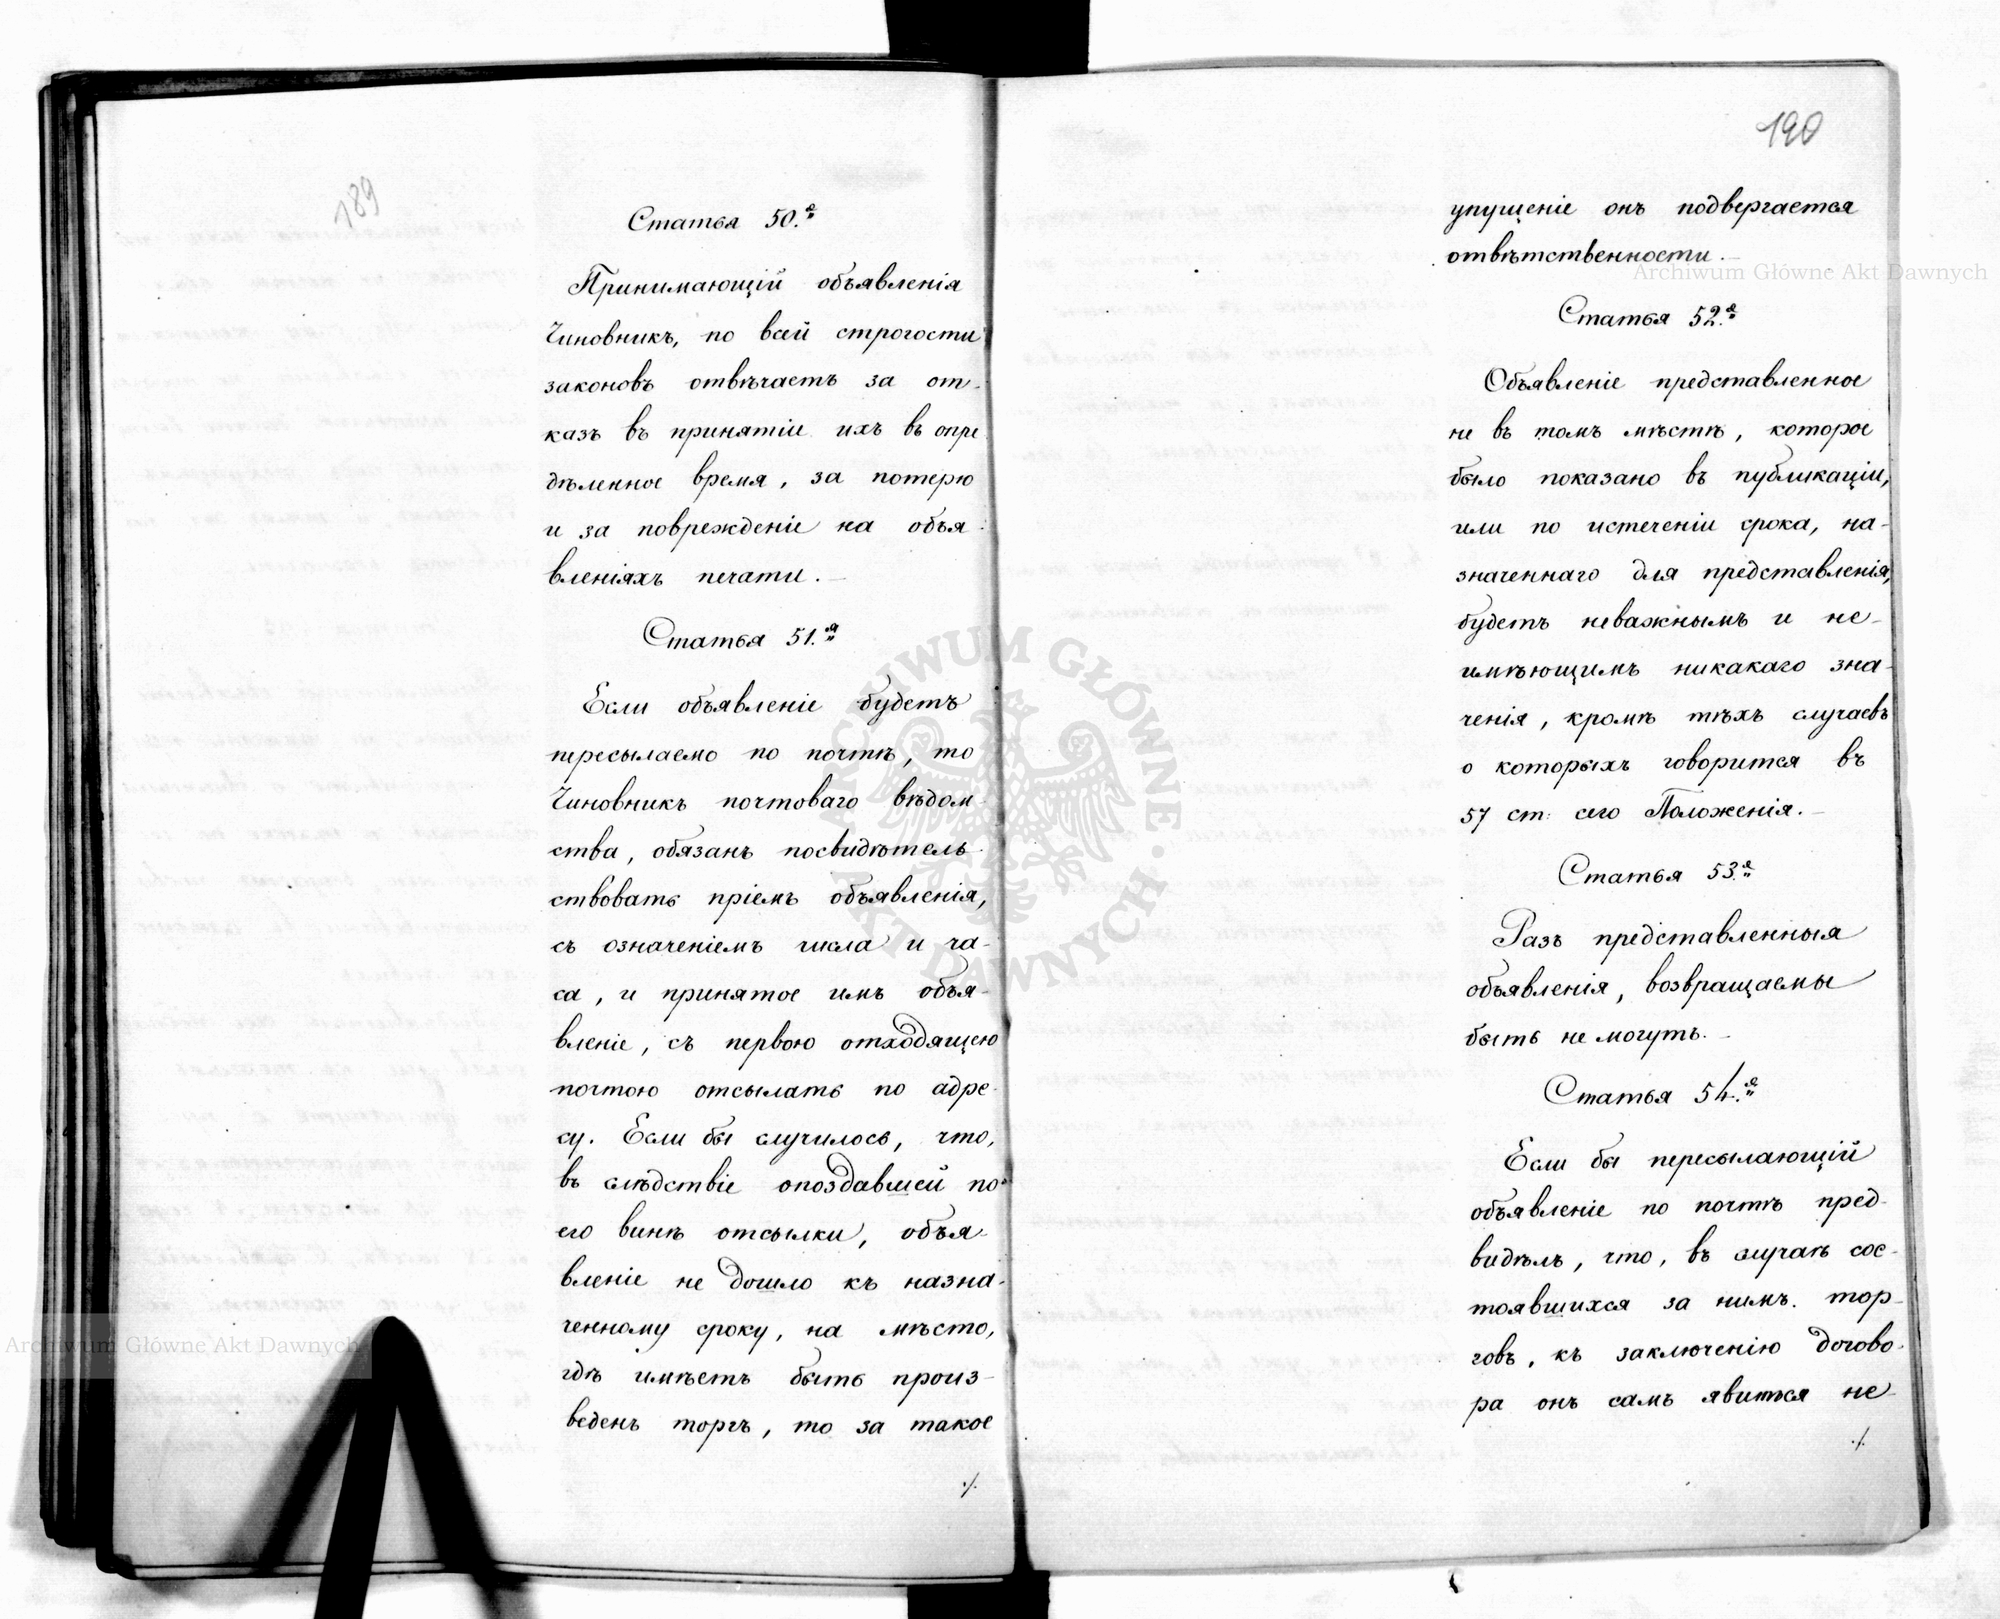 189
Статья 50.я
Принимающій объявленія
Чиновникъ, по всей строгости
законовъ отвѣчаетъ за от-
казъ въ принятіи ихъ въ опре
дѣленное время, за потерю
и за поврежденіе на объя-
вленіяхъ печати.
Статья 51.я
Если объявленіе будетъ
пересылаемо по почтѣ, то
Чиновникъ почтоваго вѣдом-
ства, обязанъ посвидѣтель-
ствовать пріемъ объявленія,
съ означеніемъ числа и ча-
са, и принятое имъ объя-
вленіе, съ первою отходящею
почтою отсылать по адре-
су. Если бы случилось, что,
въ слѣдствіе опоздавшей по
его винѣ отсылки, объя-
вленіе не дошло къ назна-
ченному сроку, на мѣсто,
гдѣ имѣетъ быть произ-
веденъ торгъ, то за такое
./.
190
упущеніе онъ подвергается
отвѣтственности.
Статья 52.я
Объявленіе представленное
не въ томъ мѣстѣ, которое
было показано въ публикаціи,
или по истеченіи срока, на-
значеннаго для представленія,
будетъ неважнымъ и не-
имѣющимъ никакаго зна-
ченія, кромѣ тѣхъ случаевъ
о которыхъ говорится въ
57 ст: сего Положенія.
Статья 53.я
Разъ представленныя
объявленія, возвращаемы
быть не могутъ.
Статья 54.я
Если бы пересылающій
объявленіе по почтѣ пред-
видѣлъ, что, въ случаѣ сос-
тоявшихся за нимъ тор-
говъ, къ заключенію догово-
ра онъ самъ явиться не
./.
Archiwum Główne Akt Dawnych
Archiwum Główne Akt Dawnych
ARCHIWUM GŁÓWNE AKT DAWNYCH